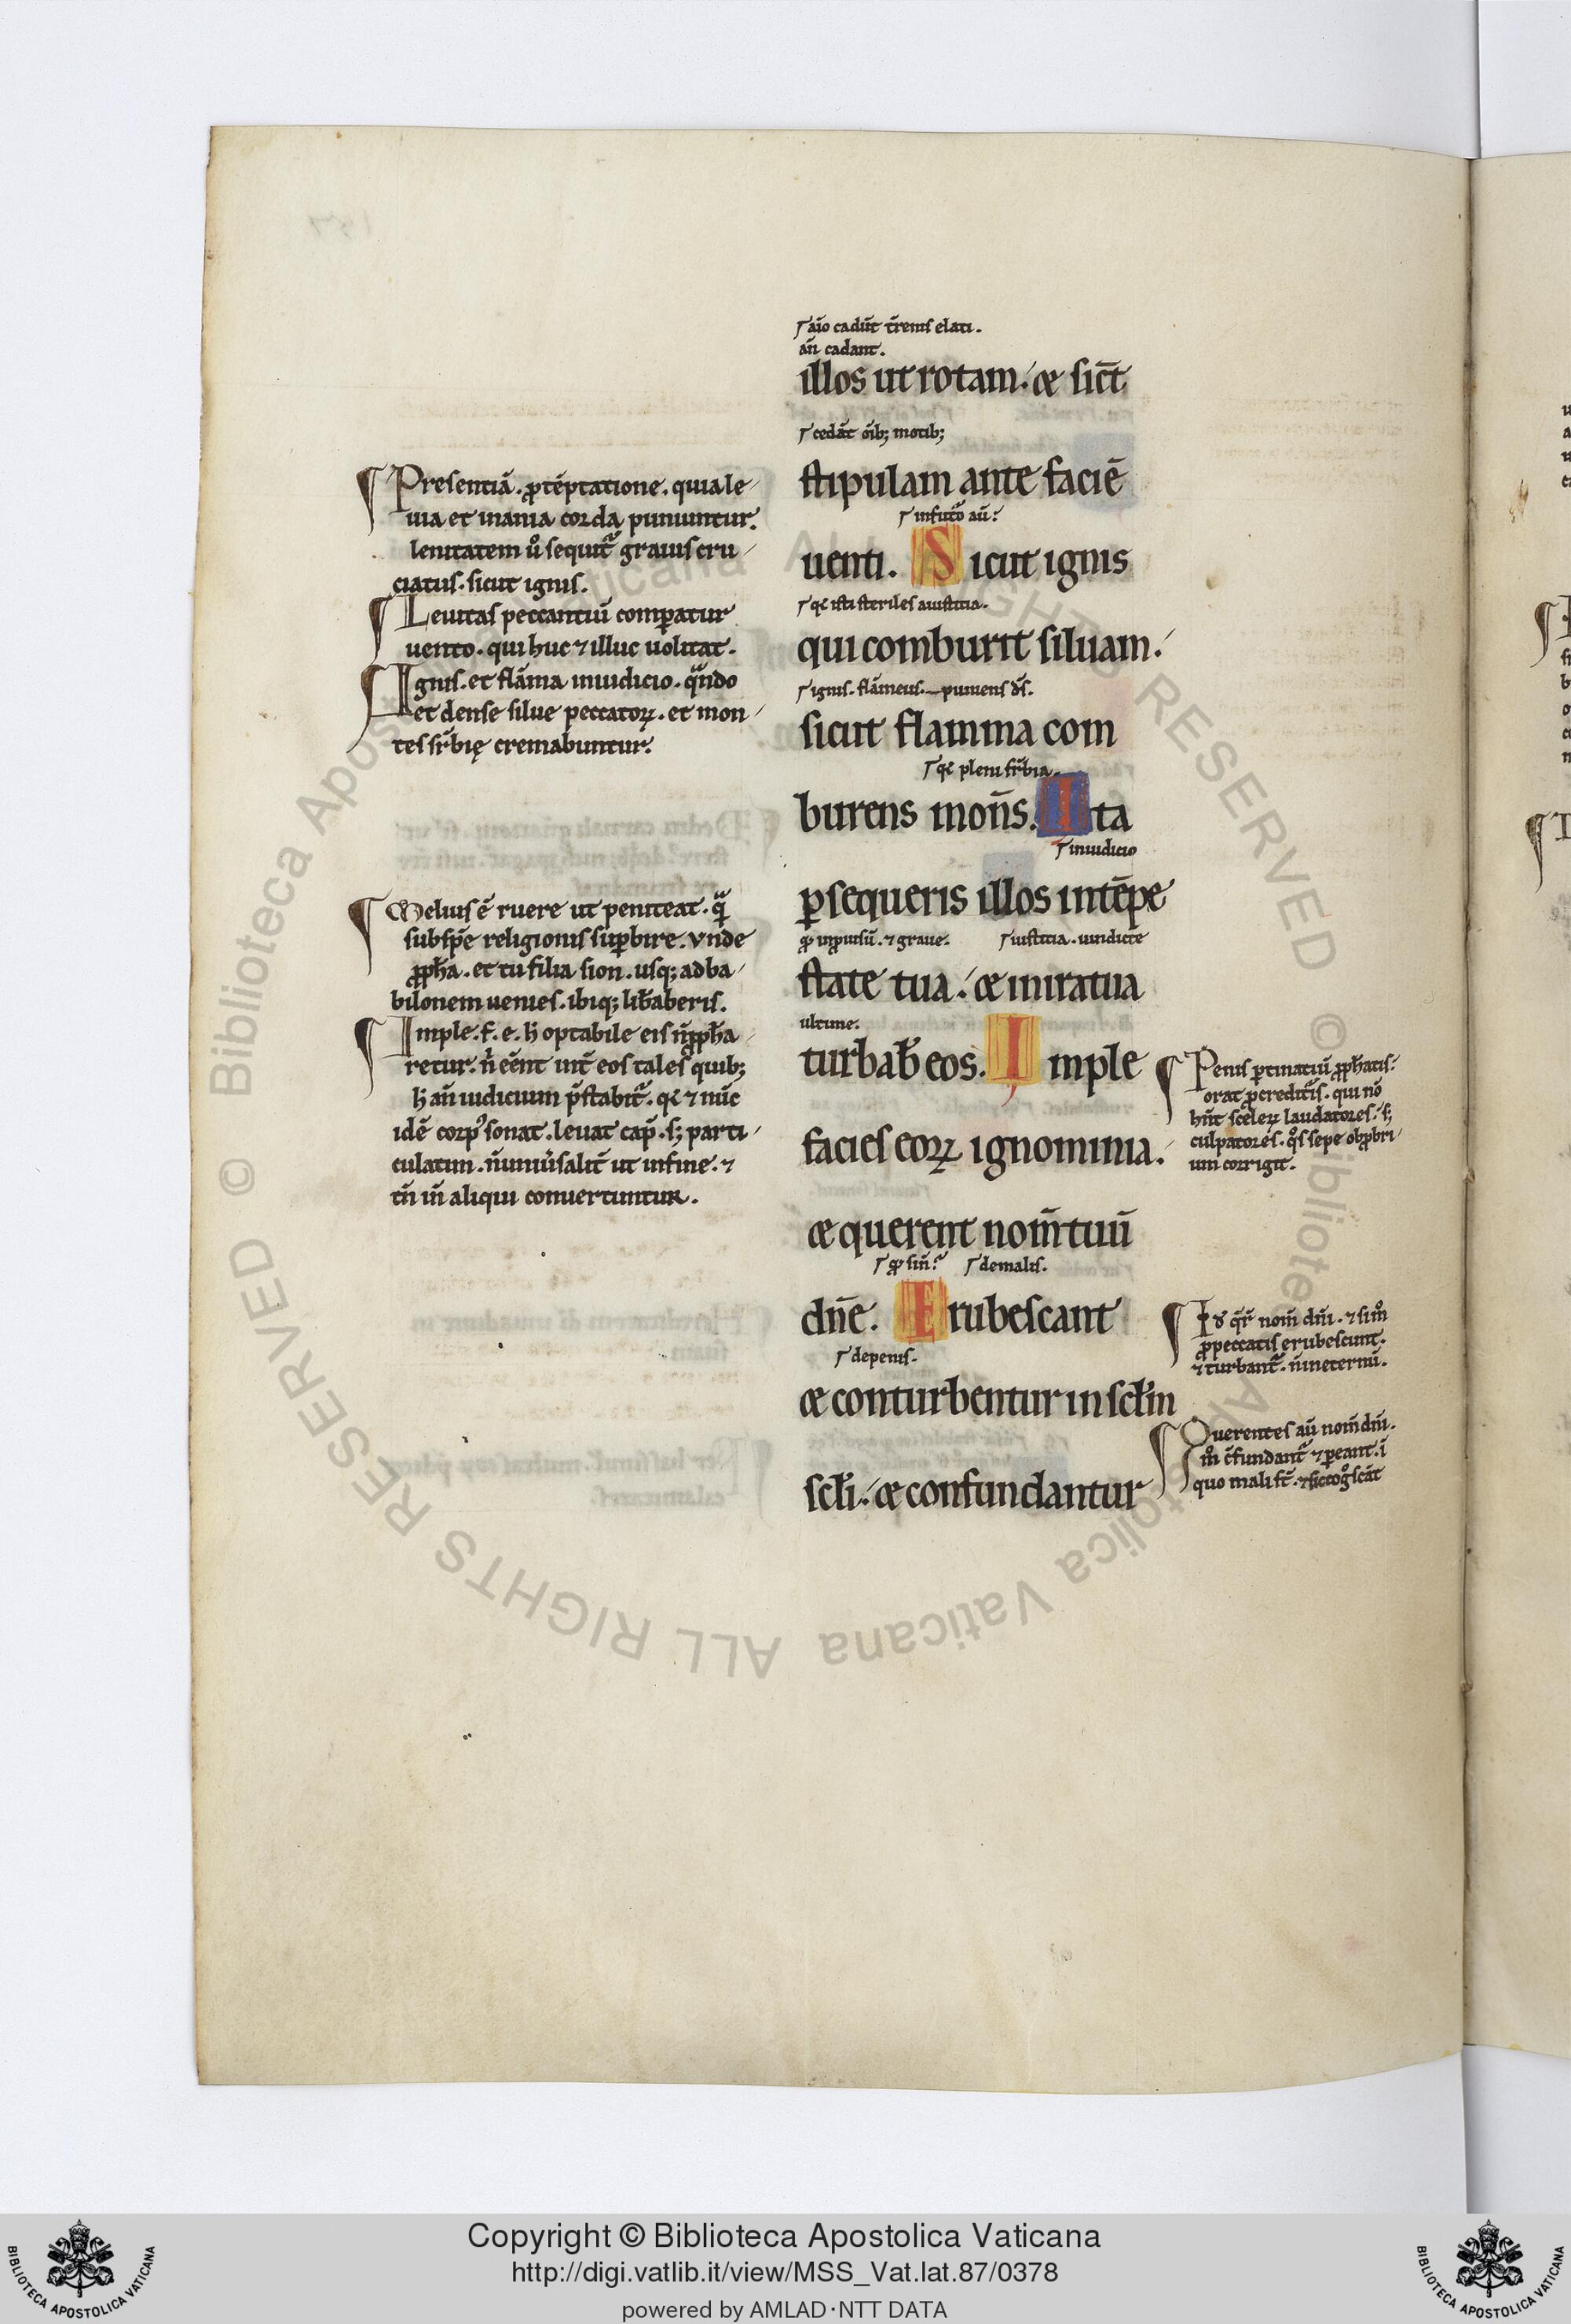 aīo cadūt t̄renis elati.
añ cadant.
illos ut rotam. et sic̄t
cedāt oīb; motib;
stipulam ante faciē
infut̄o aū.
uenti. Sicut ignis
q̄ isti steriles a iusticia.
qui comburit siluam.
ignis. flāmeus. puniens d̄s.
sicut flamma com
q̄ pleni sr̄bia.
burens mon̄s. Ita
in iudicio
ꝑsequeris illos intēpe
iusticia. uindicte
state tua. et in ira tua
ultime.
turbab̄ eos. Imple
facies eoꝝ ignominia.
et querent nom̄ tuū
de malis.
dn̄e. Erubescant
de penis.
et conturbentur in scl̄m
scl̄i. et confundantur
Presentiā. ꝓ tēptatione. quia le
uia et inania corda puniuntur.
lenitatem u̓ sequit̄ grauis cru
ciatus. sicut ignis.
Leuitas peccantiū comꝑatur
uento. qui huc ⁊ illuc uolitat.
Ignis. et flāma in iudicio. qͣndo
et dense silue peccatoꝝ. et mon
tes sr̄bię cremabuntur.
Melius ē ruere ut peniteat. qͣ
sub spē religionis suꝑbire. vnde
ꝓph̄a. et tu filia sion. usq; ad ba
bilonem uenies. ibiq; lib̄aberis.
Imple. f. e. h̄ optabile eis n̄ ꝓph̄a
retur. n̄ eēnt int̄ eos tales quib;
h̄ añ iudicium p̄stabit̄. q̄ ⁊ nūc
idē corpꝰ sonat. leuat cap̄. s; parti
culatim. n̄ uniu̓salit̄ ut in fine. ⁊
tn̄ in̄ aliqui conuertuntur.
Penis ꝑtinatiū ꝓph̄atis.
orat ꝓ creditis. qui nō
hn̄t sceleꝝ laudatores. s;
culpatores. qͦs sepe obꝓbri
um corrigit.
q̄r̄ nom̄ dn̄i. ⁊
ꝓ peccatis erubescunt.
⁊ turbant̄. n̄ in eternū.
Querentes aū nom̄ dn̄i.
c̄fundant̄ ⁊ ꝑeant. ī
quo mali st̄.
Copyright © Biblioteca Apostolica Vaticana
http://digi.vatlib.it/view/MSS_Vat.lat.87/0378
powered by AMLAD·NTT DATA
BIBLIOTECA APOSTOLICA VATICANA
BIBLIOTECA APOSTOLICA VATICANA
© Biblioteca Apostolica Vaticana ALL RIGHTS RESERVED
© Biblioteca Apostolica Vaticana ALL RIGHTS RESERVED